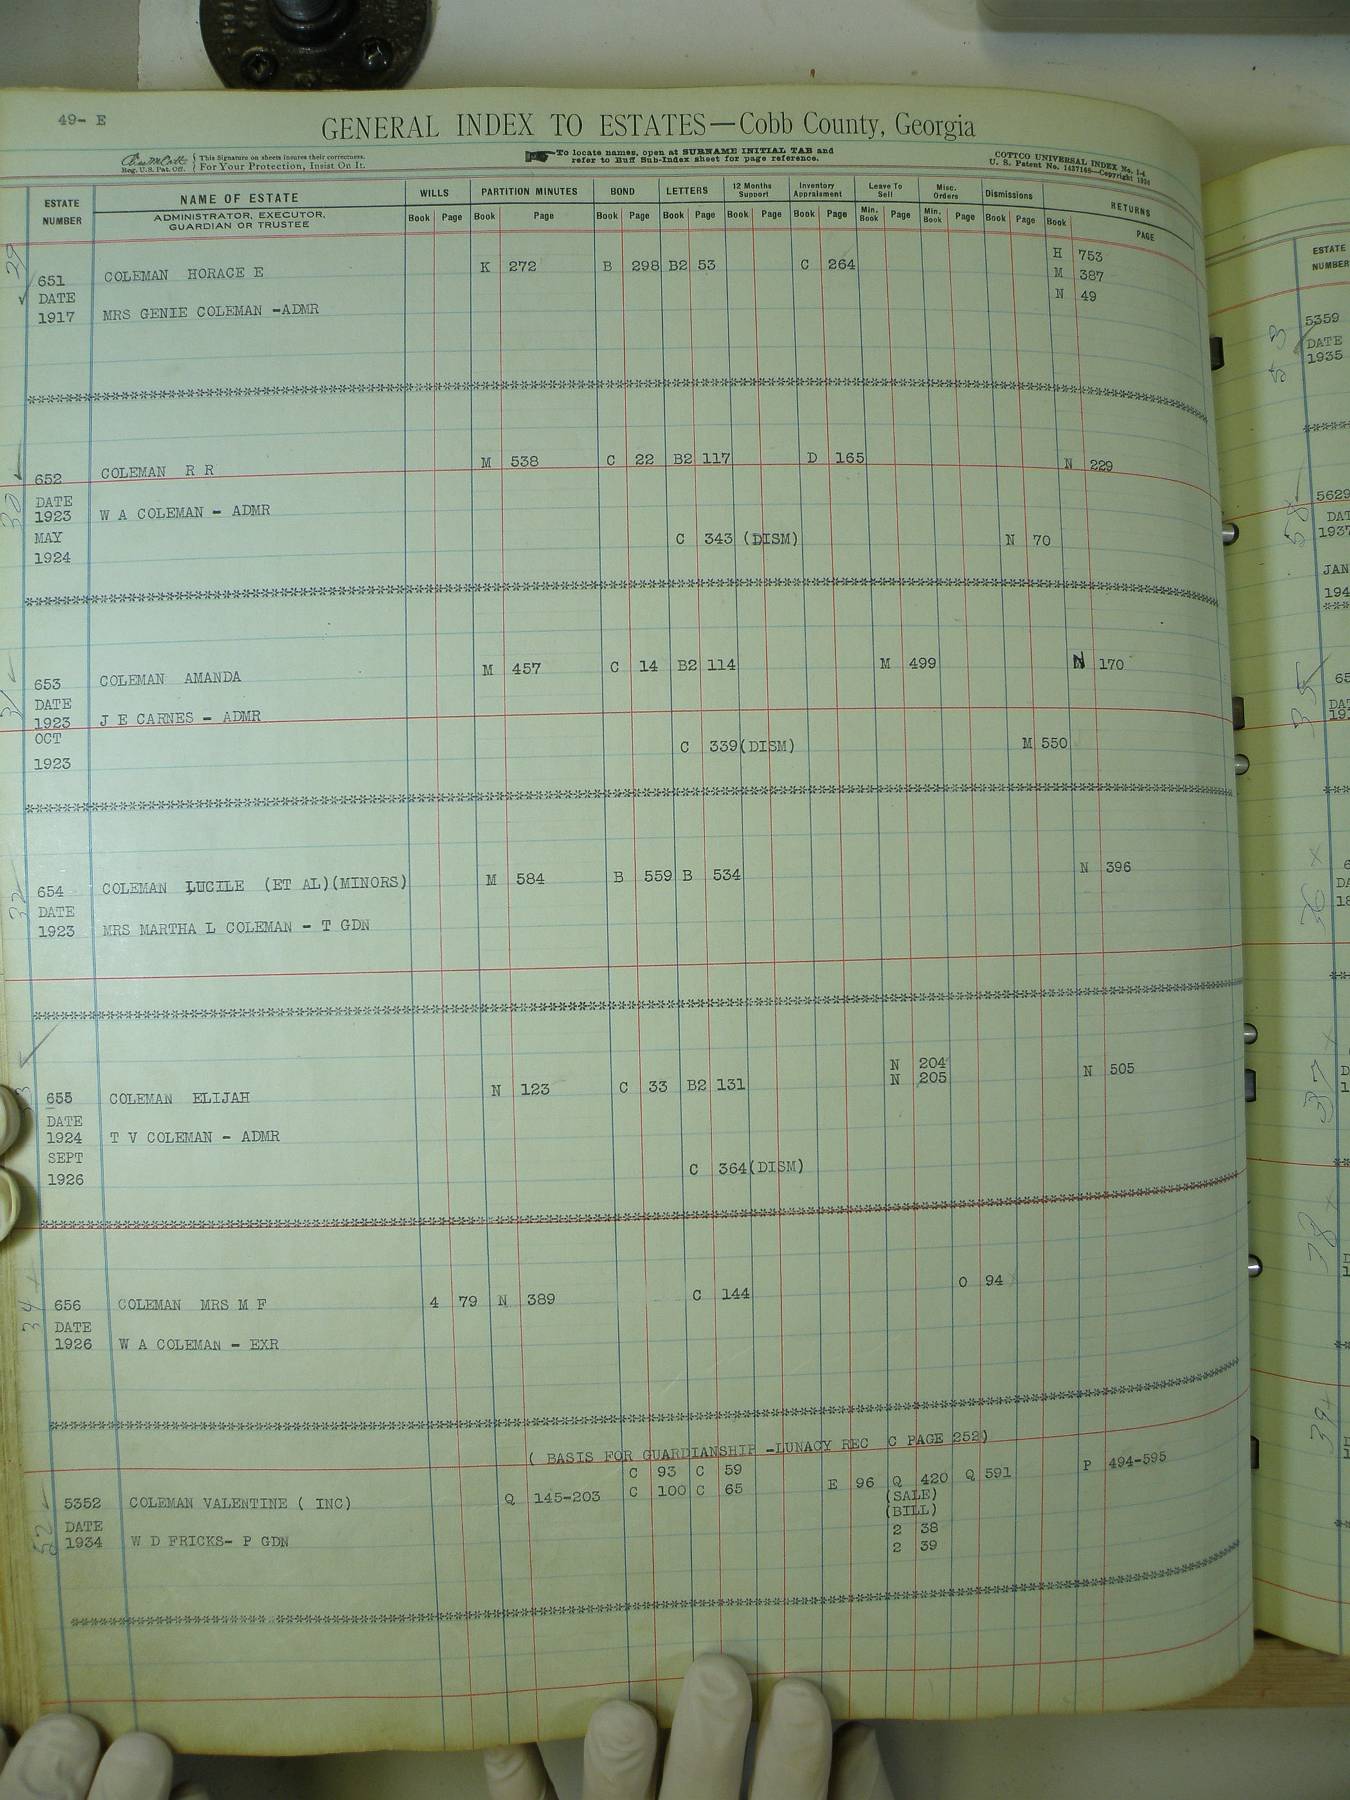 49- E
GENERAL INDEX TO ESTATES—Cobb County, Georgia
Reg. U.S. Pat. Off. This Signature on sheets insures their correctness. For Your Protection, Insist On It.
To locate names, open at SURNAME INITIAL TAB and
refer to Buff Sub-Index sheet for page reference.
COTTCO UNIVERSAL INDEX No. 1-4
U. S. Patent No. 1437168—Copyright 1934
ESTATE NUMBER
NAME OF ESTATE
ADMINISTRATOR, EXECUTOR,
GUARDIAN OR TRUSTEE
WILLS PARTITION MINUTES BOND LETTERS 12 Months Support Inventory Appraisment Leave To Sell Misc. Orders Dismissions RETURNS
Book Page Book Page Book Page Book Page Book Page Book Page Min. Book Page Min. Book Page Book Page Book PAGE
29
651 COLEMAN HORACE E K 272 B 298 B2 53 C 264 H 753
M 387
DATE N 49
1917 MRS GENIE COLEMAN -ADMR
30
652 COLEMAN R R M 538 C 22 B2 117 D 165 N 229
DATE
1923 W A COLEMAN - ADMR
MAY C 343 (DISM) N 70
1924
31
653 COLEMAN AMANDA M 457 C 14 B2 114 M 499 N 170
DATE
1923 J E CARNES - ADMR
OCT C 339(DISM) M 550
1923
32
654 COLEMAN LUCILE (ET AL)(MINORS) M 584 B 559 B 534 N 396
DATE
1923 MRS MARTHA L COLEMAN - T GDN
33
N 204
655 COLEMAN ELIJAH N 123 C 33 B2 131 N 205 N 505
DATE
1924 T V COLEMAN - ADMR
SEPT C 364(DISM)
1926
34
656 COLEMAN MRS M F 4 79 N 389 C 144 O 94
DATE
1926 W A COLEMAN - EXR
52
( BASIS FOR GUARDIANSHIP -LUNACY REC C PAGE 252)
C 93 C 59
5352 COLEMAN VALENTINE ( INC) Q 145-203 C 100 C 65 E 96 Q 420 Q 591 P 494-595
(SALE)
(BILL)
DATE 2 38
1934 W D FRICKS- P GDN 2 39
ESTATE
NUMBER
53
5359
DATE
1935
58
5629
DAT
1937
JAN
194
35
65
DA
19
36
37
38
39